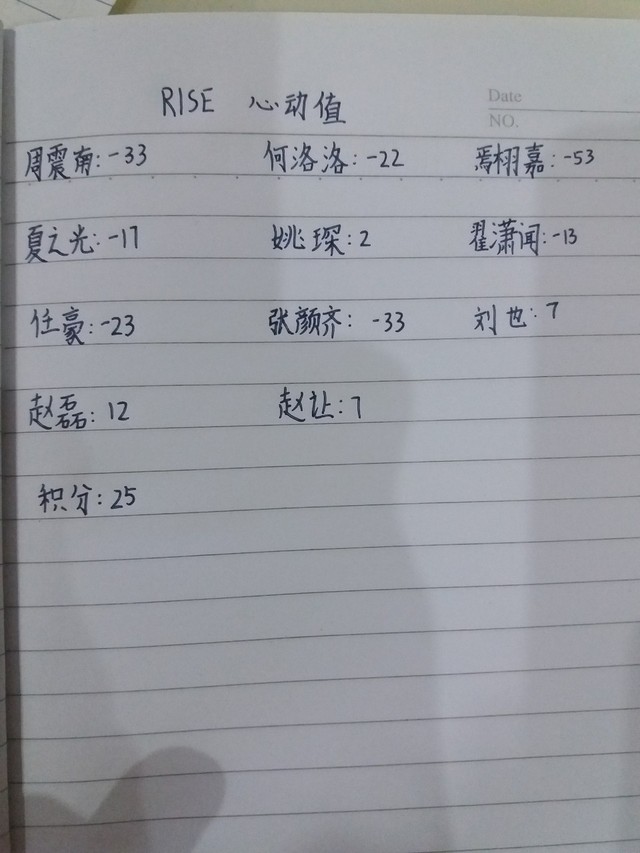 RISE 心动值
Date
NO.
周震南:-33 何洛洛:-22 焉栩嘉:-53
夏之光:-17 姚琛:2 翟潇闻:-13
任豪:-23 张颜齐:-33 刘也:7
赵磊:12 赵让:7
积分:25